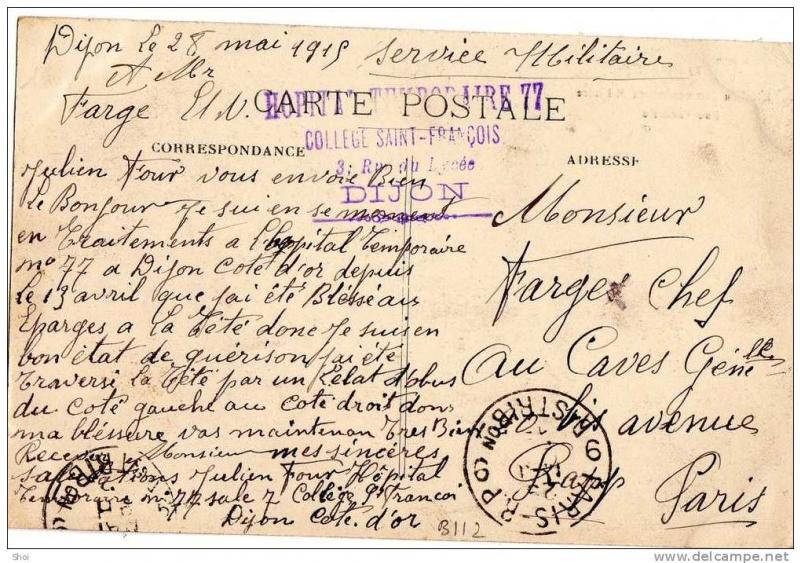 Dijon le 28 mai 1915 Service Militaire
A Mr
Farge
CARTE POSTALE
HOPITAL TEMPORAIRE 77
COLLEGE SAINT-FRANÇOIS
3, Rue du Lycée
DIJON
CORRESPONDANCE
Julien Four vous envoie Bien
le Bonjour Je sui en se moment
en traitements a l'hopital Temporaire
no 77 a Dijon Cote d'or depuis
le 13 avril que j'ai été Blésse aux
Eparges a la Tété donc Je suis en
bon état de guérison j'ai été
traversé la Tété par un Eclat d'obus
du coté gauche au coté droit dons
ma bléssure vas maintenan Tres Bien
Recevez Monsieur mes sincères
salutations Julien Four Hôpital
Temporaire no 77 sale 7 Collège St Francoi
Dijon Cote d'or
B112
ADRESSE
Monsieur
Farges Chef
au Caves Génélle
bis avenue
Rapp
Paris
PARIS R.P. DISTRIBON
Shoi
delcampe.net